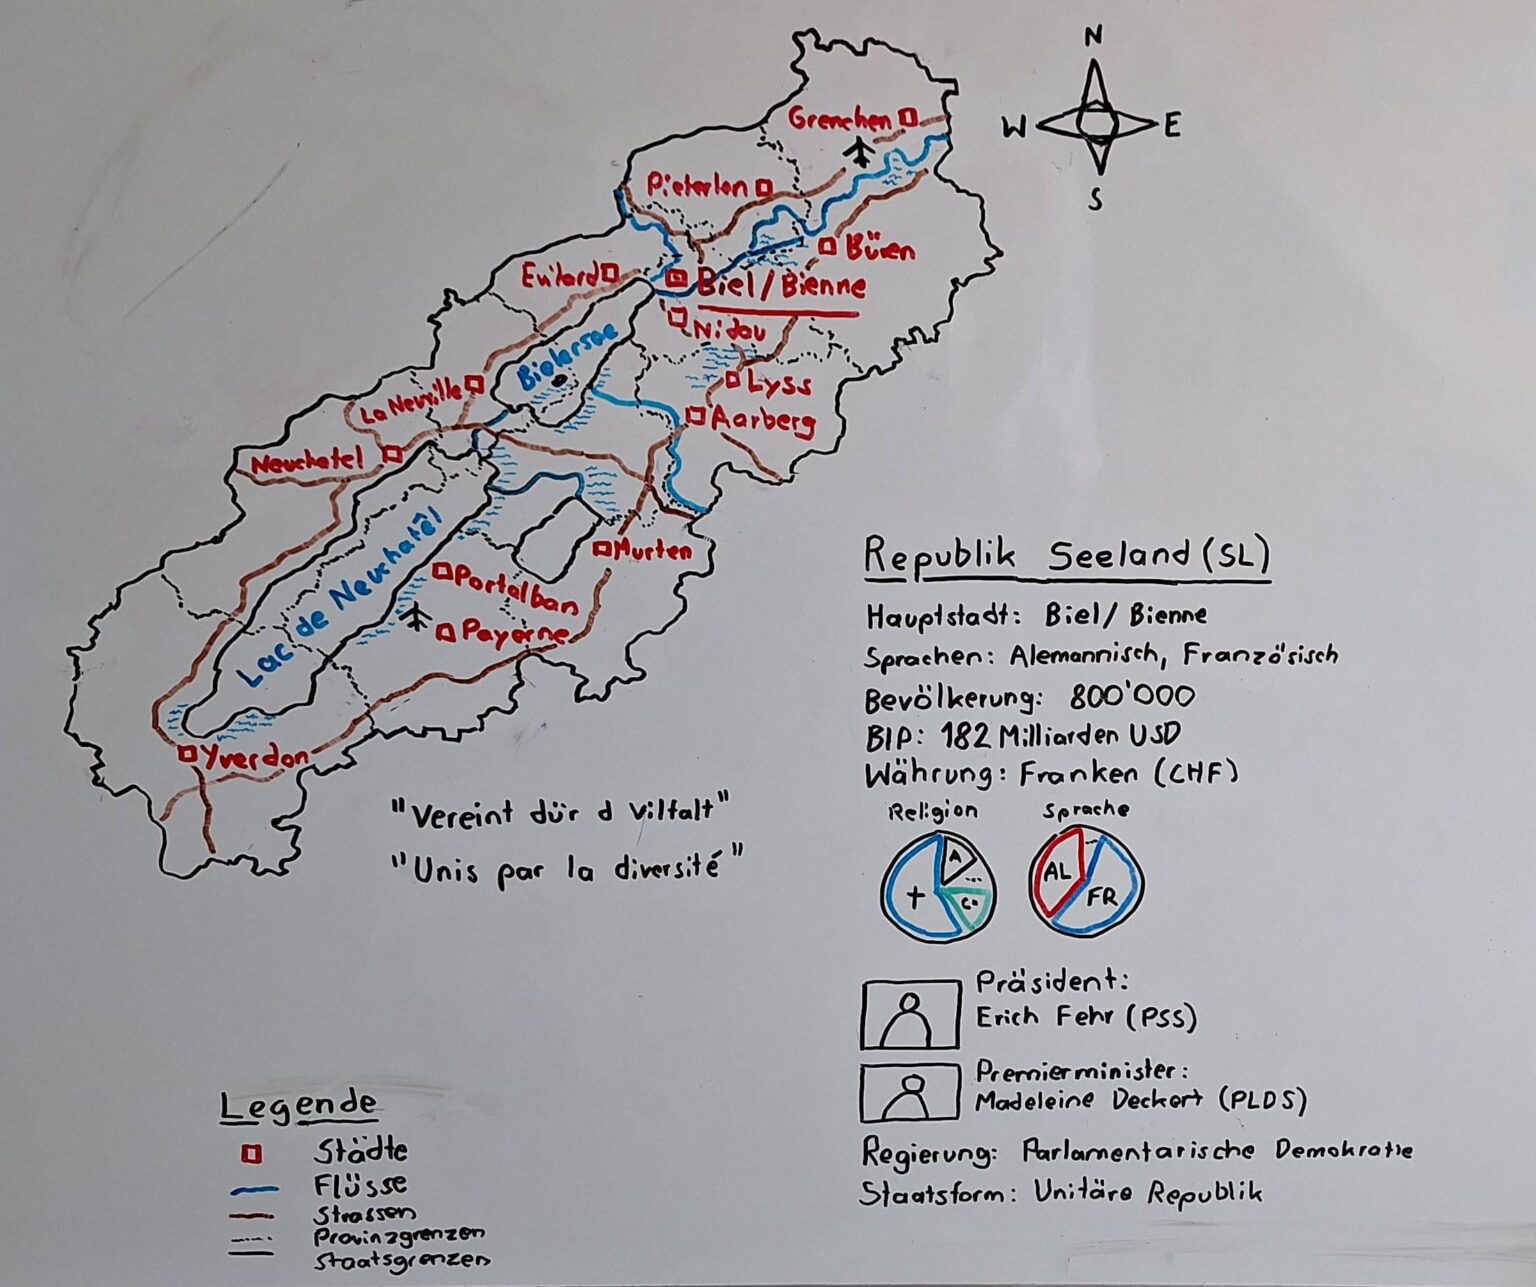 N
W
E
S
Grenchen
Pieterlen
Büren
Evilard
Biel/Bienne
Nidau
Bielersee
Lyss
La Neuville
Aarberg
Neuchatel
Lac de Neuchatêl
Murten
Portalban
Payerne
Yverdon
"Vereint dür d Vilfalt"
"Unis par la diversité"
Republik Seeland (SL)
Hauptstadt: Biel/Bienne
Sprachen: Alemannisch, Französisch
Bevölkerung: 800'000
BIP: 182 Milliarden USD
Währung: Franken (CHF)
Religion
Sprache
A
...
+
AL
FR
Präsident:
Erich Fehr (PSS)
Premierminister:
Madeleine Deckert (PLDS)
Regierung: Parlamentarische Demokratie
Staatsform: Unitäre Republik
Legende
Städte
Flüsse
Strassen
Provinzgrenzen
Staatsgrenzen